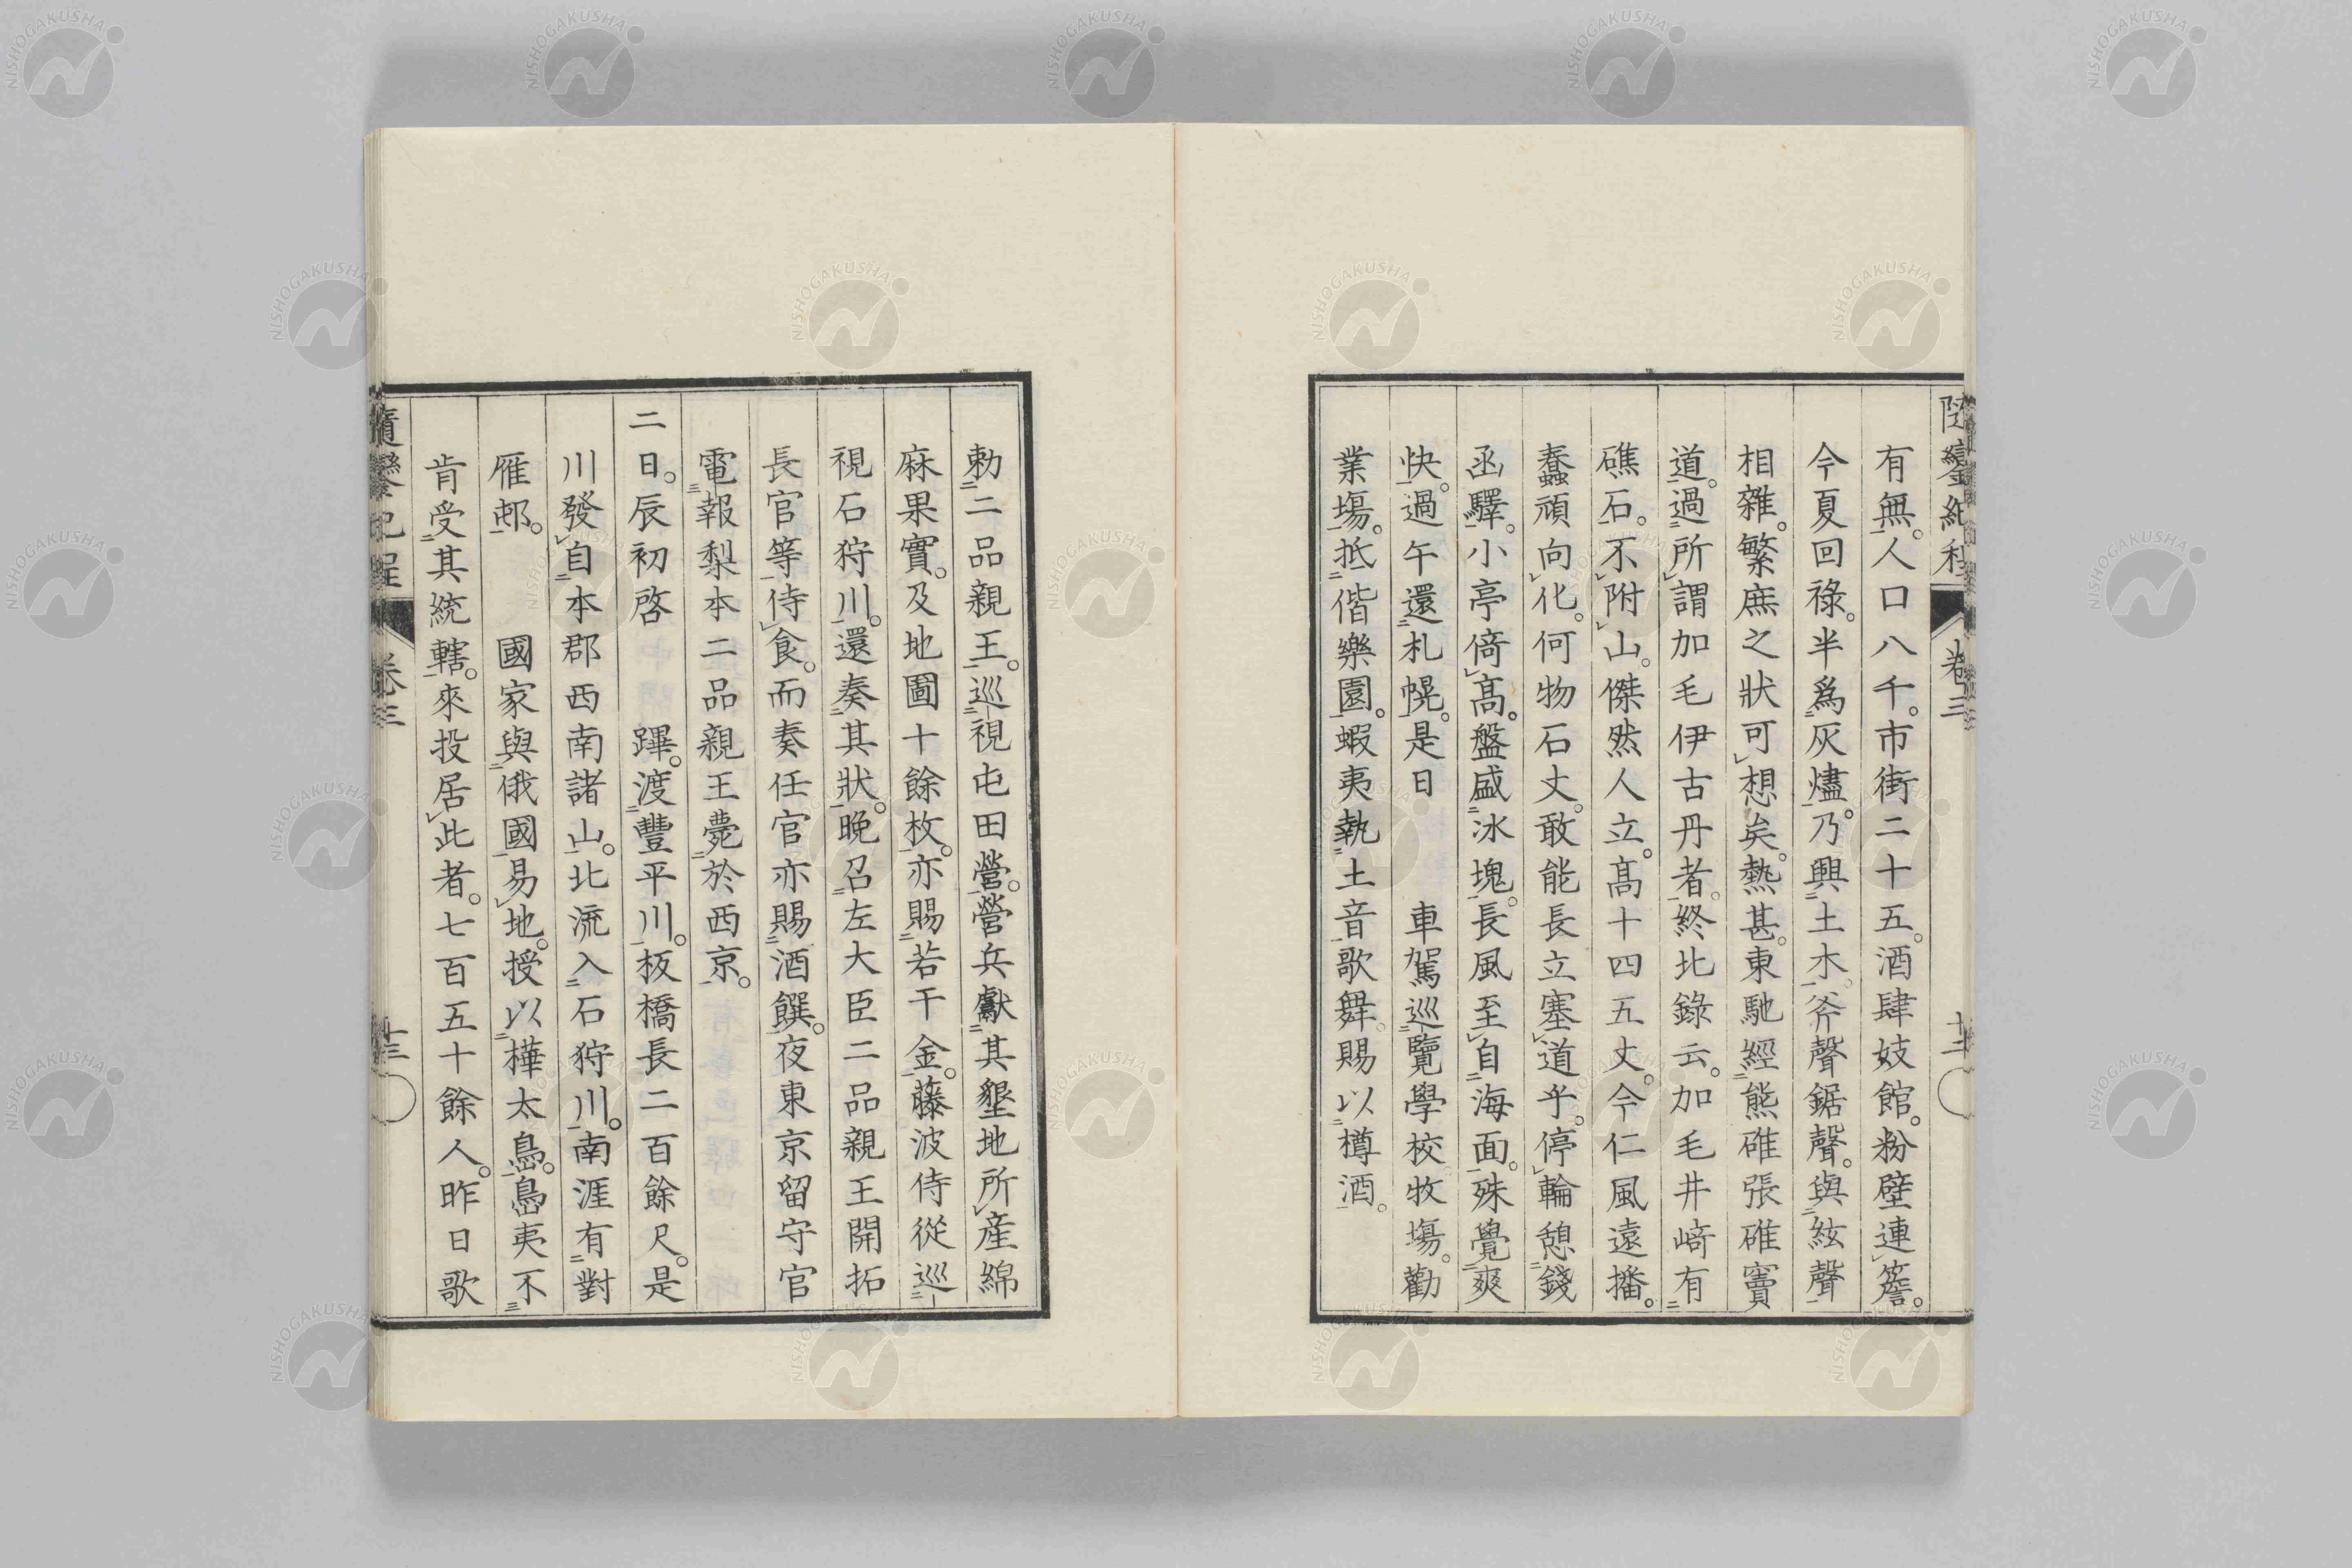 有無。人口八千。市街二十五。酒肆妓館。粉壁連簷。
今夏回祿。半爲灰燼。乃興土木。斧聲鋸聲。與絃聲
相雜。繁庶之狀可想矣。熱甚。東馳經熊碓張碓竇
道。過所謂加毛伊古丹者。終北錄云。加毛井﨑有
礁石。不附山。傑然人立。髙十四五丈。今仁風遠播。
蠢頑向化。何物石丈。敢能長立塞道乎。停輪憩錢
函驛。小亭倚髙。盤盛冰塊。長風至自海面。殊覺爽
快。過午還札幌。是日　　車駕巡覽學校牧塲。勸
業塲。抵偕樂園。蝦夷執土音歌舞。賜以樽酒。
隨鑾紀程　卷三　十二
勅二品親王。巡視屯田營。營兵獻其墾地所產綿
麻果實。及地圖十餘枚。亦賜若干金。藤波侍從巡
視石狩川。還奏其狀。晚召左大臣二品親王開拓
長官等侍食。而奏任官亦賜酒饌。夜東京留守官
電報梨本二品親王薨於西京。
二日。辰初啓　　蹕。渡豐平川。板橋長二百餘尺。是
川發自本郡西南諸山。北流入石狩川。南涯有對
雁邨。　　國家與俄國易地。授以樺太島。島夷不
肯受其統轄。來投居此者。七百五十餘人。昨日歌
隨鑾紀程　卷三　十三
NISHOGAKUSHA